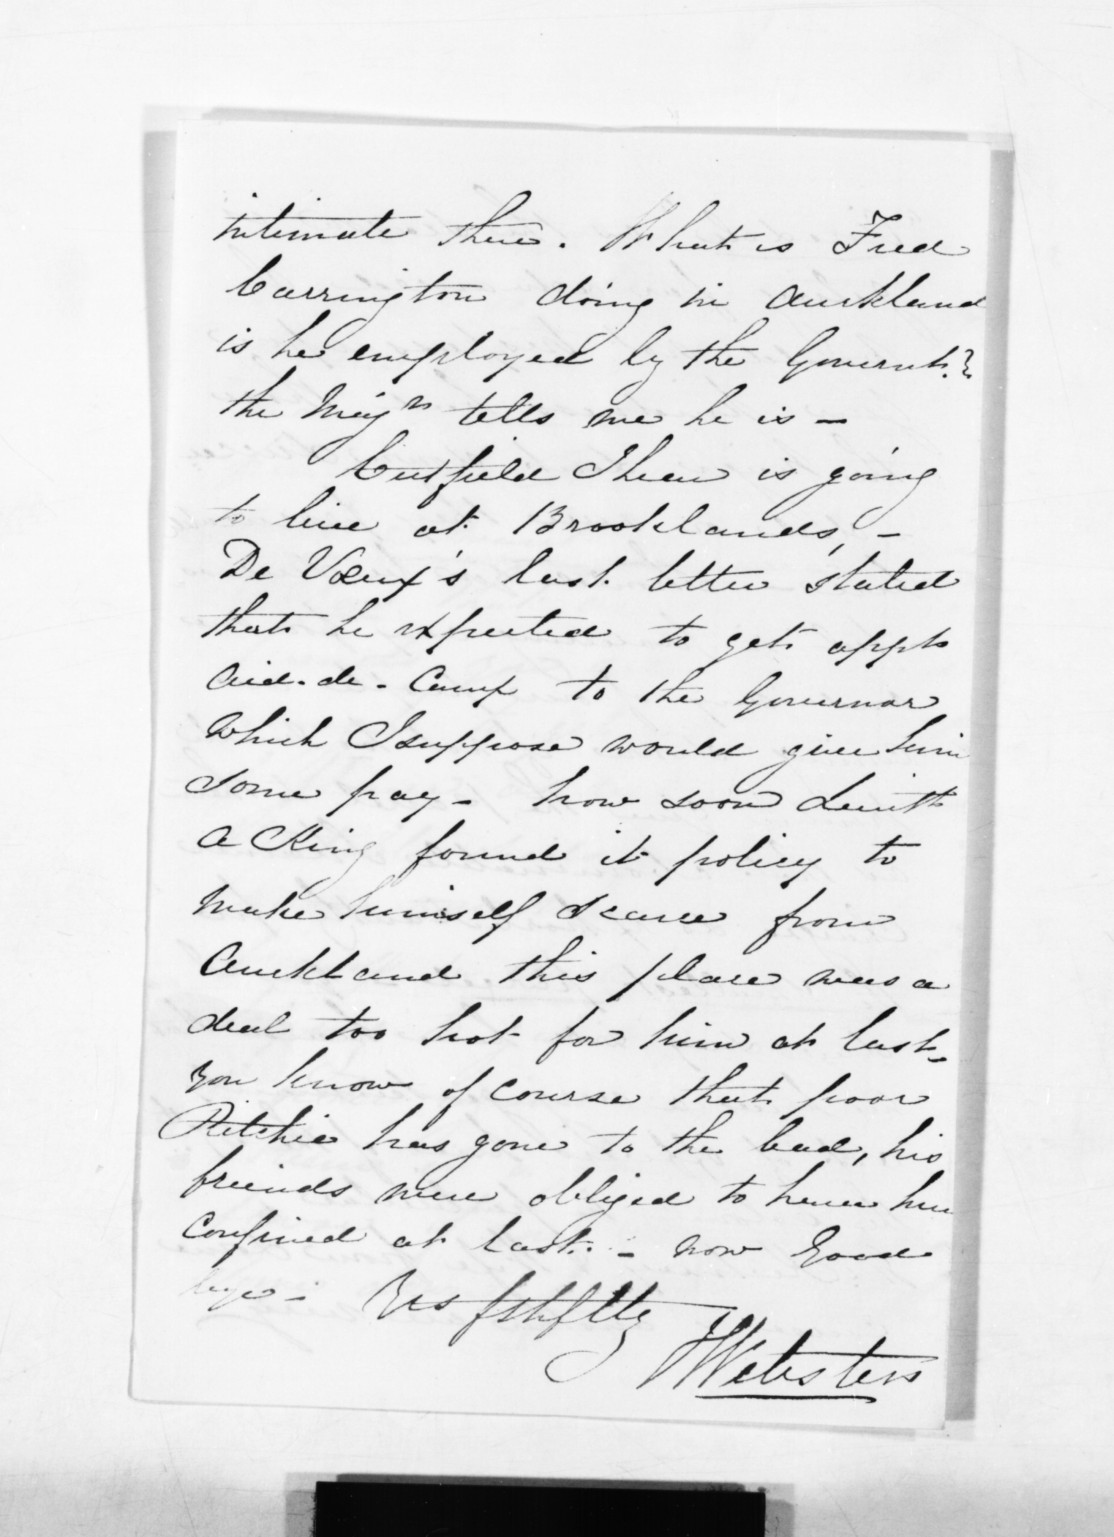 intimate there. What is Fred
Carrington doing in Auckland
is he employed by the Governt.?
the Majr tells me he is —
Cutfield I hear is going
to live at Brooklands, —
De Vœux's last letter stated
that he expected to get appt
aid-de-Camp to the Governor
which I suppose would give him
some pay — how soon
a King found it policy to
make himself scarce from
Auckland this place was a
deal too hot for him at last —
you know of course that poor
Ritchie has gone to the bad, his
friends were obliged to have him
confined at last. — now Good
bye — Yrs fthflly
Webster